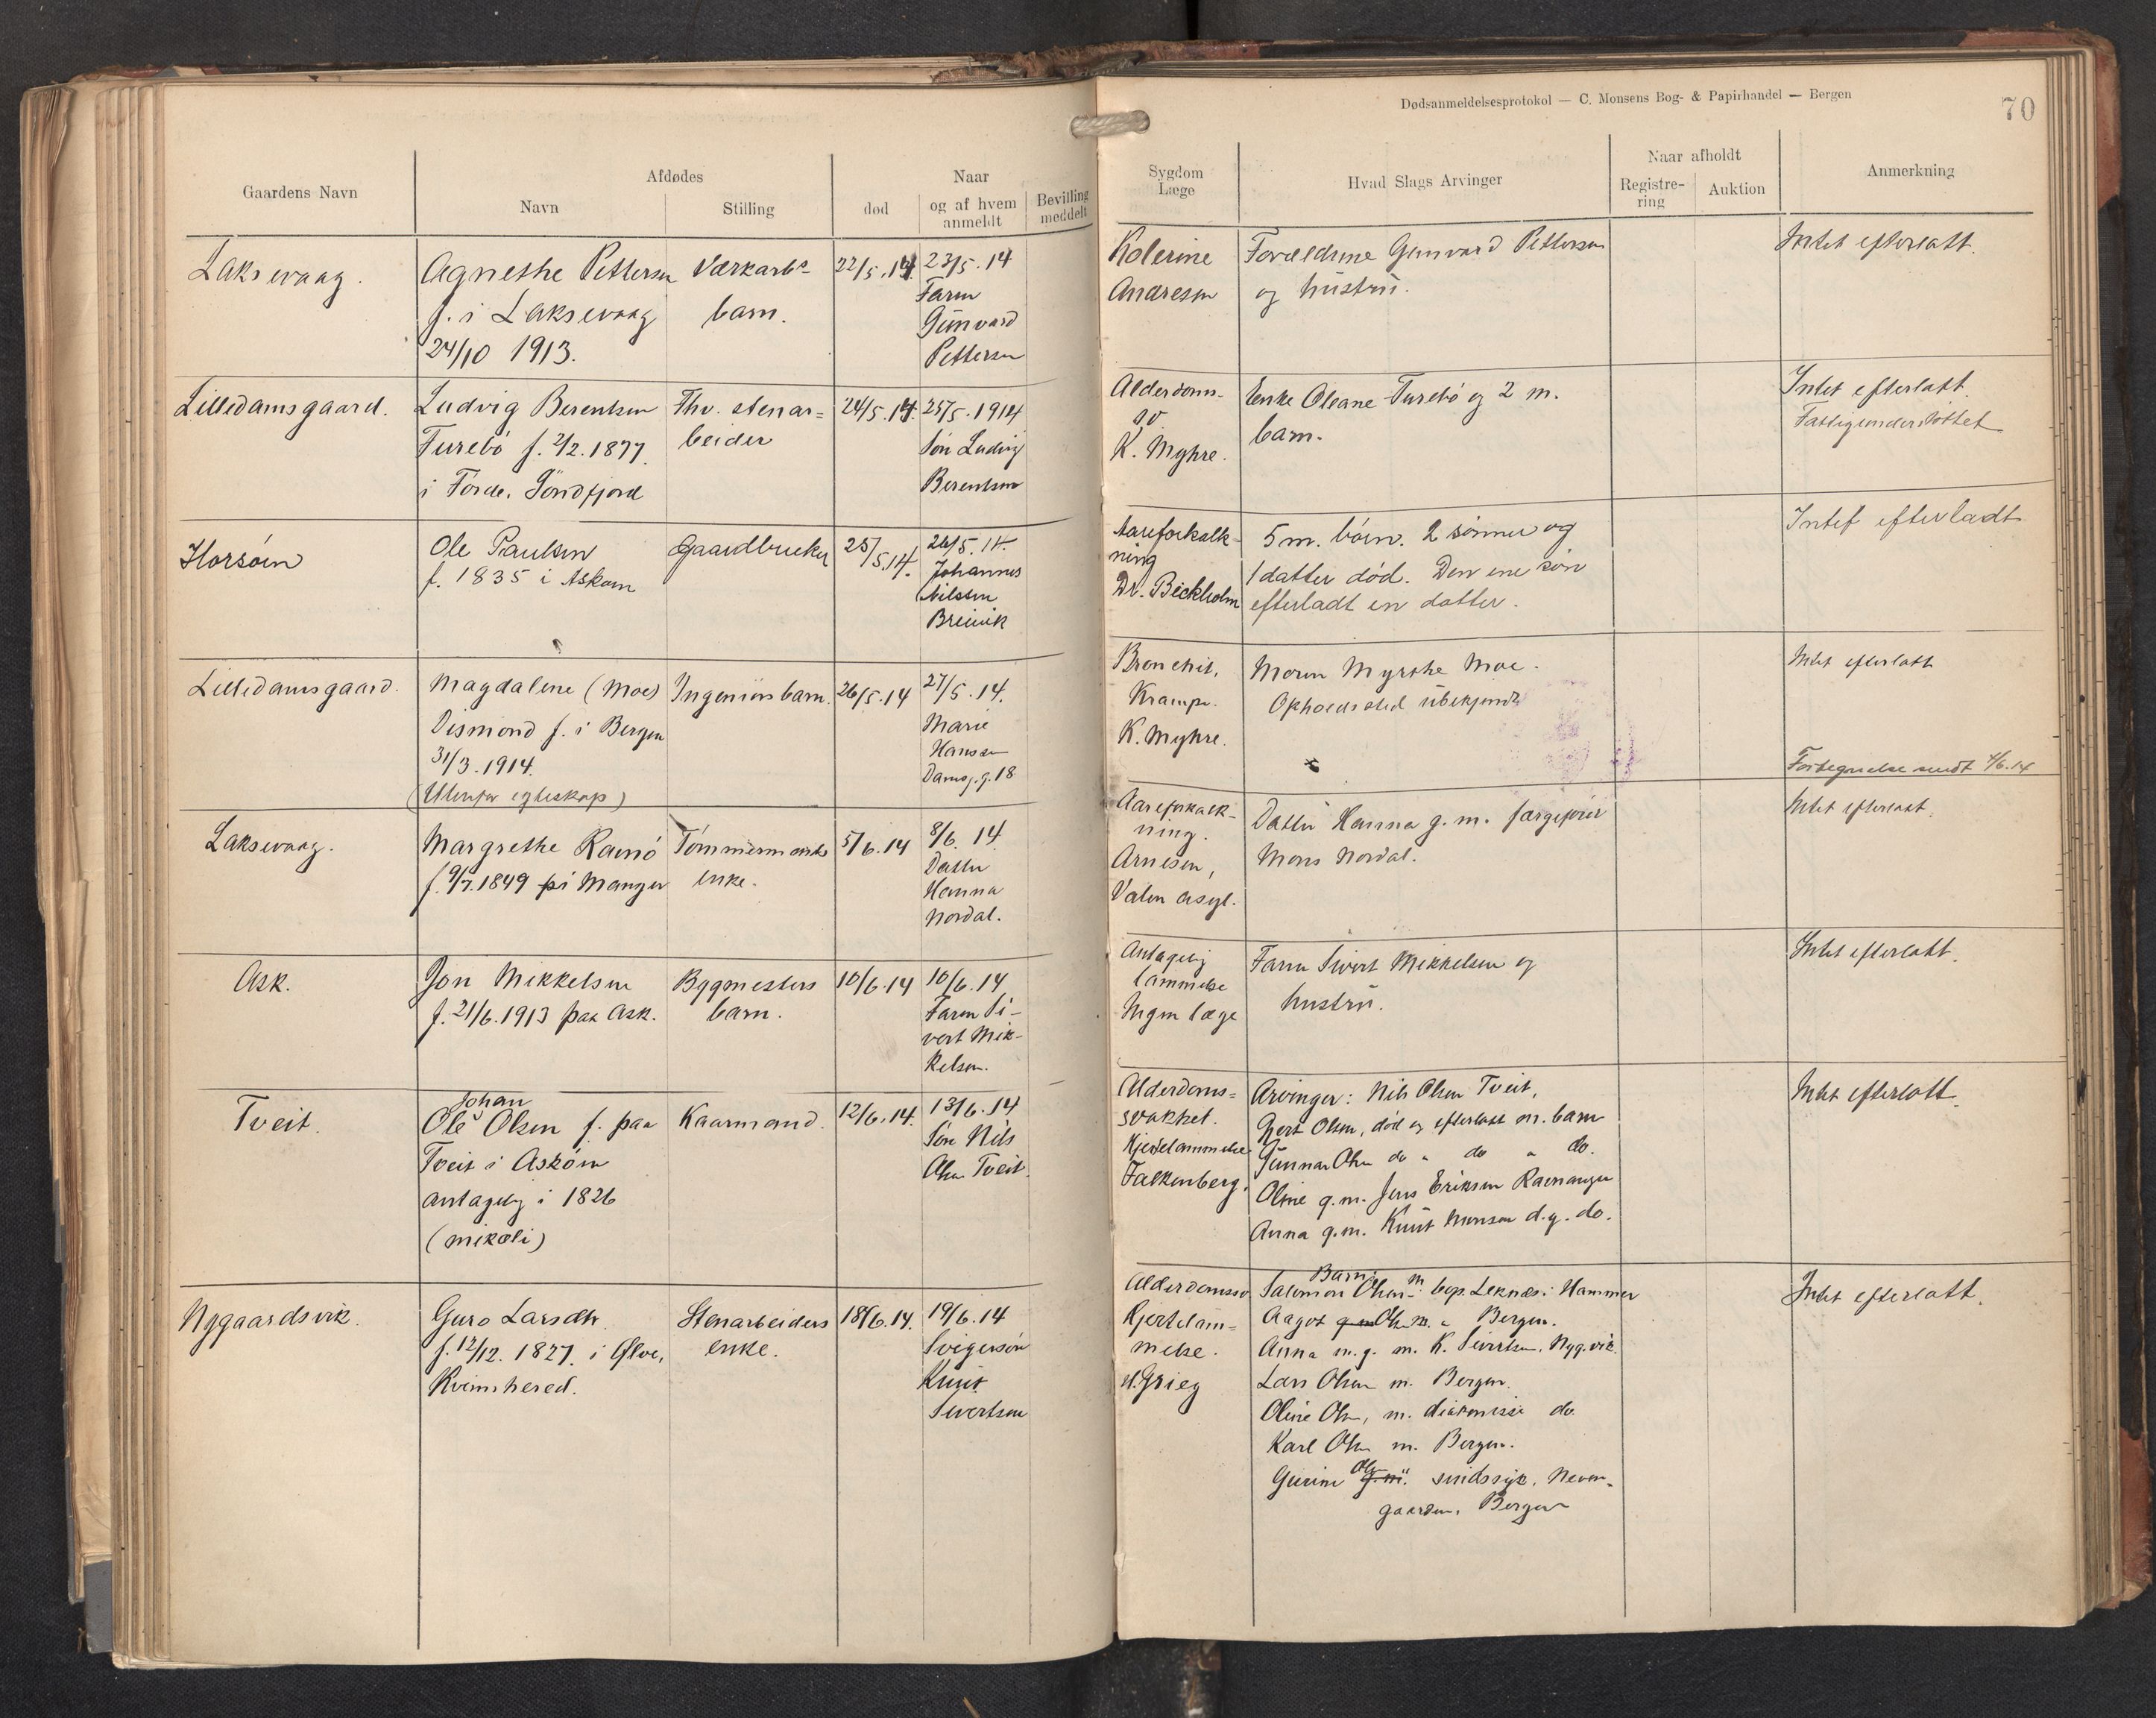 Gaardens Navn
Afdødes
Navn
Stilling
død
Naar
og af hvem
anmeldt
Bevilling
meddelt
Laksevaag.
Agnethe Pettersen
f. i Laksevaag
24/10 1913.
Værkarbs
barn.
22/5.14.
23/5.14
Faren
Gunvard
Pettersen
Lilledamsgaard.
Ludvig Berentsen
Turebö f. 2/2.1877.
i Förde. Söndfjord
Thv. stenar=
beider
24/5.14.
25/5.1914
Sön Ludvig
Berentsen
Horsöen
Ole Paulsen
f. 1835 i Askøen
Gaardbruker
25/5.14.
26/5.14.
Johannes
Nilssen
Breivik
Lilledamsgaard.
Magdalene (Moe)
Dismond f. i Bergen
31/3.1914.
(Utenfor egteskap)
Ingeniörs barn.
26/5.14
27/5.14.
Marie
Hanssen
Damsg.g. 18
Laksevaag.
Margrethe Ramö
f. 9/7.1849 på Manger
Tömmermands
enke.
5/6.14
8/6.14.
Datter
Hanna
Nordal.
Ask.
Jon Mikkelsen
f. 21/6.1913 paa Ask.
Bygmesters
barn.
10/6.14
10/6.14
Faren Si-
vert Mik-
kelsen.
Tveit.
Johan
Ole Olsen f. paa
Tveit i Asköen
antagelig i 1826
(mikæli)
Kaarmand.
12/6.14.
13/6.14
Sön Nils
Olsen Tveit.
Nygaardsvik.
Guro Larsdtr.
f. 12/12. 1827. i Ølve,
Kvinnhered.
Stenarbeiders
enke.
18/6.14.
19/6.14
Svigersön
Knut
Sivertsen
Dødsanmeldelsesprotokol — C. Monsens Bog- & Papirhandel — Bergen
70
Sygdom
Læge
Hvad Slags Arvinger
Naar afholdt
Registre-
ring
Auktion
Anmerkning
Kolerine
Andresen
Forældrene Gunvard Pettersen
og hustru.
Intet efterlatt.
Alderdoms-
sv
K. Myhre.
Enke Oleane Turebö og 2 m.
barn.
Intet efterlatt.
Fattigunderstöttet
Aareforkalk-
ning
Dr. Bickholm
5 m. börn. 2 sönner og
1 datter död. Den ene sön
efterladt en datter.
Intet efterladt
Bronchit,
Krampe.
K. Myhre.
Moren Myrthe Moe.
Opholdssted ubekjendt
Intet efterlatt
Fortegnelse sendt 4/6.14
Aareforkalk-
ning.
Arnesen,
Valen asyl.
Datter Hanna g. m. færgefører
Mons Nordal.
Intet efterlatt.
Antagelig
lammelse
Ingen læge
Faren Sivert Mikkelsen og
hustru.
Intet efterlatt.
Alderdoms=
svakhet.
Hjertelammelse
Falkenberg.
Arvinger: Nils Olsen Tveit,
Gert Olsen, död og efterlatt m. barn
Gunnar Olsen do " do " do.
Oline g. m. Jens Eriksen Ravnanger
Anna g. m. Knut Monsen d.y. do.
Intet efterlatt.
Alderdomssv
Hjertelam=
melse.
d. Grieg
Barn:
Salomon Olsen m. bop. Leknes i Hammer
Aagot Olsen m. " Bergen.
Anna m. g. m. K. Sivertsen, Nyg.vik.
Lars Olsen m. Bergen.
Oline Olsen, m. diakonisse do
Karl Olsen m. Bergen.
Gurine Olsen sindssyk. Neven-
gaarden, Bergen
Intet efterlatt.